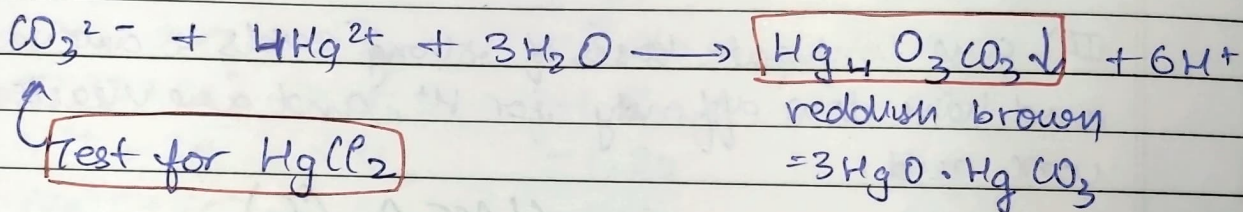 CO₃²⁻ + 4Hg²⁺ + 3H₂O ⟶ Hg₄O₃CO₃↓ + 6H⁺
reddish brown
Test for HgCl₂
= 3HgO·HgCO₃